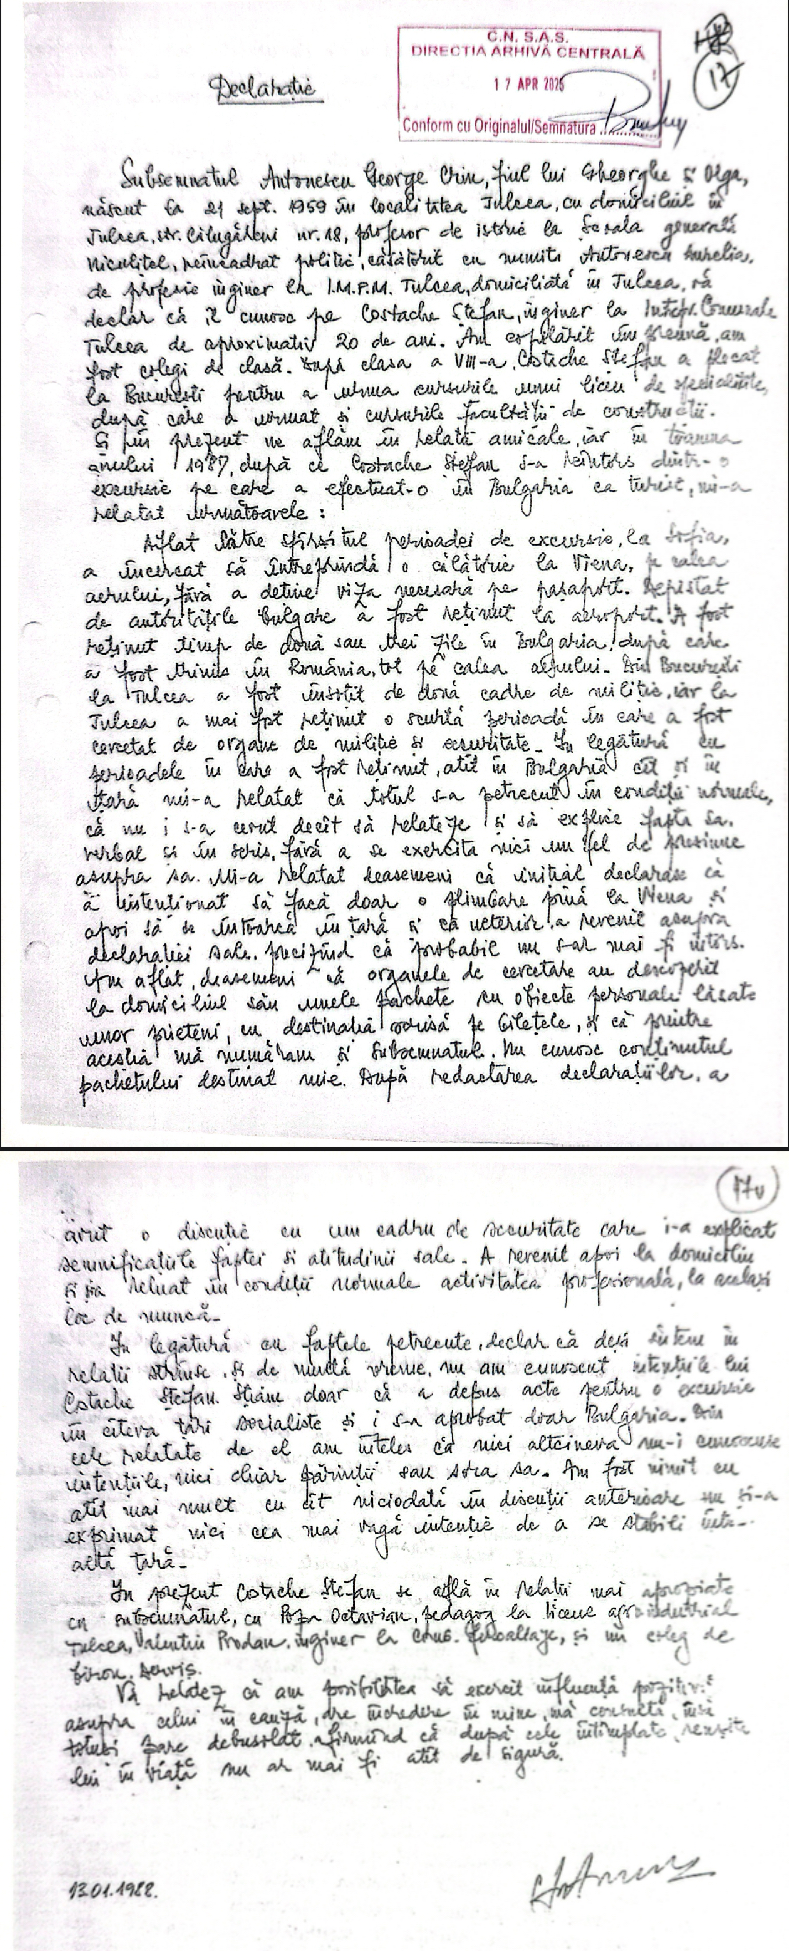 C.N. S.A.S.
DIRECTIA ARHIVĂ CENTRALĂ
17 APR 2025
Conform cu Originalul/Semnatura
17
Declarație
Subsemnatul Antonescu George Crin, fiul lui Gheorghe și Olga,
născut la 21 sept. 1959 în localitatea Tulcea, cu domiciliul în
Tulcea, str. Călugăreni nr. 18, profesor de istorie la Școala generală
Niculițel, neîncadrat politic, căsătorit cu numita Antonescu Aurelia,
de profesie inginer la I.M.P.M. Tulcea, domiciliată în Tulcea, vă
declar că îl cunosc pe Costache Ștefan, inginer la Întrepr. Comunale
Tulcea de aproximativ 20 de ani. Am copilărit împreună, am
fost colegi de clasă. După clasa a VIII-a, Costache Ștefan a plecat
la București pentru a urma cursurile unui liceu de specialitate,
după care a urmat și cursurile facultății de construcții.
Și în prezent ne aflăm în relații amicale, iar în toamna
anului 1987, după ce Costache Ștefan s-a reîntors dintr-o
excursie pe care a efectuat-o în Bulgaria ca turist, mi-a
relatat următoarele:
Aflat către sfîrșitul perioadei de excursie, la Sofia,
a încercat să întreprindă o călătorie la Viena, pe calea
aerului, fără a deține viza necesară pe pașaport. Depistat
de autoritățile bulgare a fost reținut la aeroport. A fost
reținut timp de două sau trei zile în Bulgaria, după care
a fost trimis în România, tot pe calea aerului. Din București
la Tulcea a fost însoțit de două cadre de miliție, iar la
Tulcea a mai fost reținut o scurtă perioadă în care a fost
cercetat de organe de miliție și securitate. În legătură cu
perioadele în care a fost reținut, atît în Bulgaria cît și în
țară mi-a relatat că totul s-a petrecut în condiții normale,
că nu i s-a cerut decît să relateze și să explice fapta sa,
verbal și în scris, fără a se exercita nici un fel de presiune
asupra sa. Mi-a relatat deasemeni că inițial declarase că
a intenționat să facă doar o plimbare pînă la Viena și
apoi să se întoarcă în țară și că ulterior a revenit asupra
declarației sale, precizînd că probabil nu s-ar mai fi întors.
Am aflat, deasemeni că organele de cercetare au descoperit
la domiciliul său unele pachete cu obiecte personale lăsate
unor prieteni, cu destinația scrisă pe bilețele, și că printre
aceștia mă număram și subsemnatul. Nu cunosc conținutul
pachetului destinat mie. După redactarea declarațiilor, a
17v
avut o discuție cu un cadru de securitate care i-a explicat
semnificațiile faptei și atitudinii sale. A revenit apoi la domiciliu
și și-a reluat în condiții normale activitatea profesională, la același
loc de muncă.
În legătură cu faptele petrecute, declar că deși sîntem în
relații strînse, și de multă vreme, nu am cunoscut intențiile lui
Costache Ștefan. Știam doar că a depus acte pentru o excursie
în cîteva țări socialiste și i s-a aprobat doar Bulgaria. Din
cele relatate de el am înțeles că nici altcineva nu-i cunoscuse
intențiile, nici chiar părinții sau sora sa. Am fost uimit cu
atît mai mult cu cît niciodată în discuții anterioare nu și-a
exprimat nici cea mai vagă intenție de a se stabili într-
altă țară.
În prezent Costache Ștefan se află în relații mai apropiate
cu subsemnatul, cu Popa Octavian, pedagog la liceul agroindustrial
Tulcea, Valentin Prodan, inginer la Cons. și un coleg de
birou,
Vă relatez că am posibilitatea să exercit influență pozitivă
asupra celui în cauză, are încredere în mine, mă consultă, însă
totuși pare debusolat, afirmînd că după cele întîmplate, reușita
lui în viață nu ar mai fi atît de sigură.
13.01.1988.